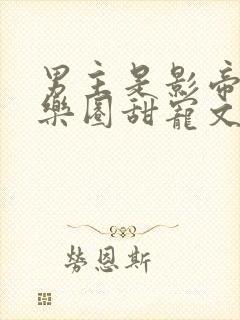 男主是影帝
樂園甜寵文
勞恩斯